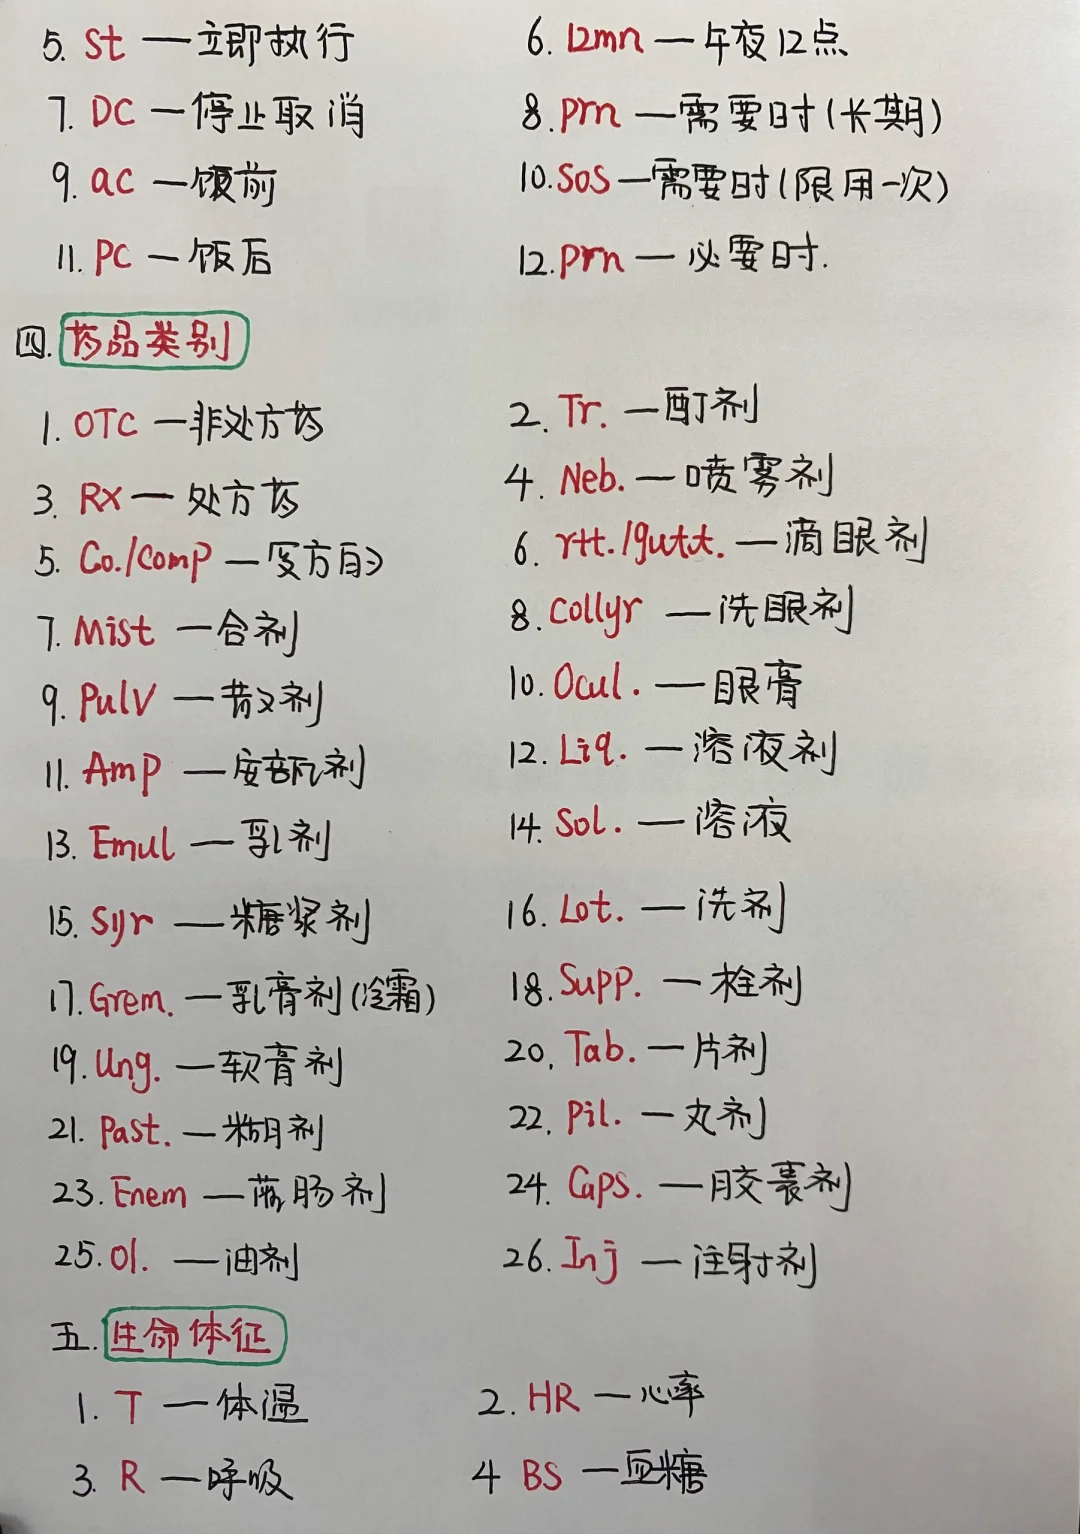 5. St — 立即执行 6. 12mn — 午夜12点
7. DC — 停止取消 8. prn — 需要时(长期)
9. ac — 饭前 10. SoS — 需要时(限用一次)
11. PC — 饭后 12. prn — 必要时.
四. 药品类别
1. OTC — 非处方药 2. Tr. — 酊剂
3. Rx — 处方药 4. Neb. — 喷雾剂
5. Co./comp — 复方的 6. rtt./gutt. — 滴眼剂
7. Mist — 合剂 8. Collyr — 洗眼剂
9. PulV — 散剂 10. Ocul. — 眼膏
11. Amp — 安瓿剂 12. Liq. — 溶液剂
13. Emul — 乳剂 14. Sol. — 溶液
15. Syr — 糖浆剂 16. Lot. — 洗剂
17. Grem. — 乳膏剂(冷霜) 18. Supp. — 栓剂
19. Ung. — 软膏剂 20. Tab. — 片剂
21. Past. — 糊剂 22. Pil. — 丸剂
23. Enem — 灌肠剂 24. Caps. — 胶囊剂
25. Ol. — 油剂 26. Inj — 注射剂
五. 生命体征
1. T — 体温 2. HR — 心率
3. R — 呼吸 4 BS — 血糖